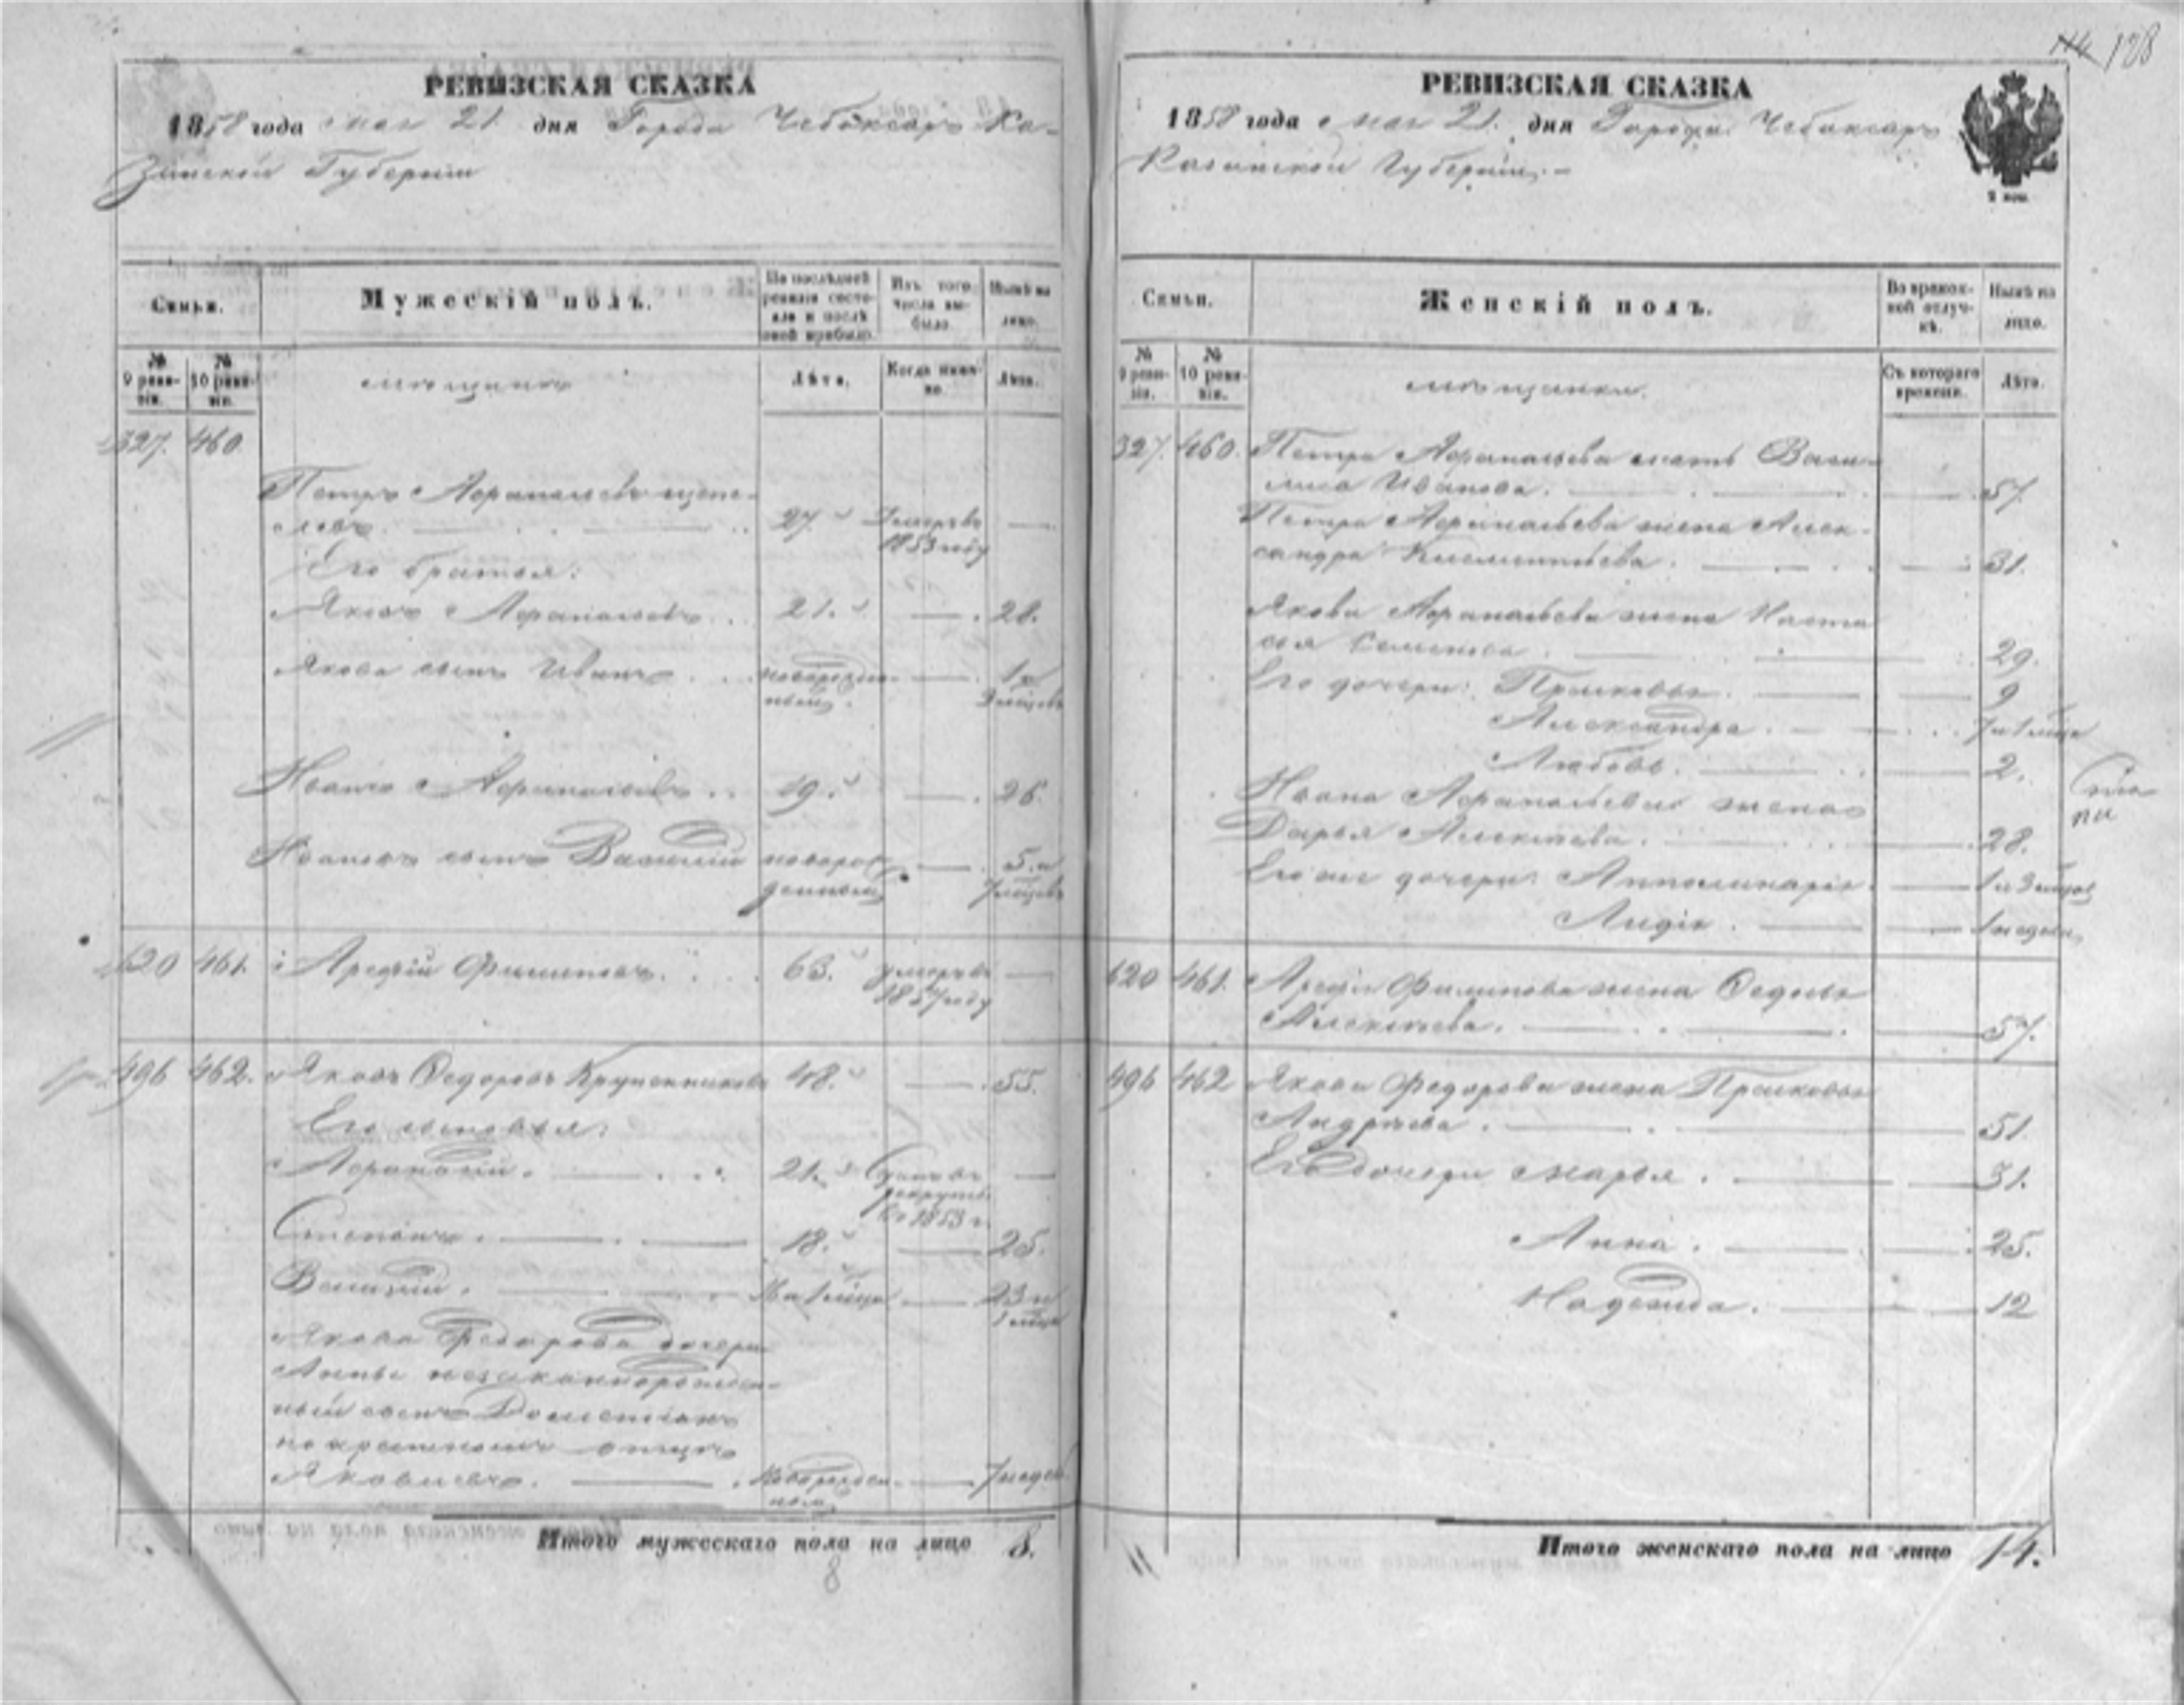 128
РЕВИЗСКАЯ СКАЗКА
1858 года мая 21 дня Города Чебоксаръ Ка-
занской Губернiи
Семьи.
Мужескiй полъ.
По послѣдней ревизiи состояло и послѣ оной прибыло.
Изъ того числа выбыло.
Нынѣ на лицо.
№ 9 ревизiи.
№ 10 ревизiи.
мѣщанъ
Лѣта.
Когда именно.
Лѣта.
327. 460
Петръ Афанасьевъ
27. Умеръ въ
1853 году
Его братья:
Яковъ Афанасьевъ 21. 28.
Якова сынъ Иванъ новорожден- 1 и
ный. 9 мѣсцевъ
Иванъ Афанасьевъ 19. 26.
Ивановъ сынъ Василiй новорож 5 и
денный 7 мѣсцевъ
620 461. Арефiй Филиповъ. 63. умеръ въ
1857 году
496 462. Яковъ Федоровъ Крупенниковъ 48. 55.
Его сыновья:
Афанасiй. 21. Сданъ въ
рекруты
въ 1853 г.
Степанъ. 18. 25.
Василiй. 16 и 1 мѣсца 23 и
1 мѣсца
Якова Федорова дочери
Анны незаконнорожден-
ный сынъ Дометiанъ
по крестномъ отцѣ
Яковлевъ. Новорожден- 7 недель
ной
Итого мужескаго пола на лицо 8.
8
РЕВИЗСКАЯ СКАЗКА
1858 года мая 21. дня Города Чебоксаръ
Казанской Губернiи.
2 коп.
Семьи.
Женскiй полъ.
Во временной отлучкѣ.
Нынѣ на лицо.
№ 9 ревизiи.
№ 10 ревизiи.
мѣщанки.
Съ котораго времени.
Лѣта.
327. 460. Петра Афанасьева мать Васи-
лиса Иванова. 57.
Петра Афанасьева жена Алек-
сандра Климентьева. 31.
Якова Афанасьева жена Наста
сья Семенова. 29.
Его дочери: Прасковья. 9
Александра. 7 и 1 мѣсца
Любовь. 2.
Ивана Афанасьева жена
Дарья Алексѣева. 28.
Его же дочери: Апполинарiя. 1 и 3 мѣсцов
Лидiя. 1 недели
620 461. Арефiя Филипова жена Федосья
Алексѣева. 57.
496 462 Якова Федорова жена Прасковья
Андрѣева. 51.
Его дочери Марья. 31.
Анна. 25.
Надежда. 12
Итого женскаго пола на лицо 14.